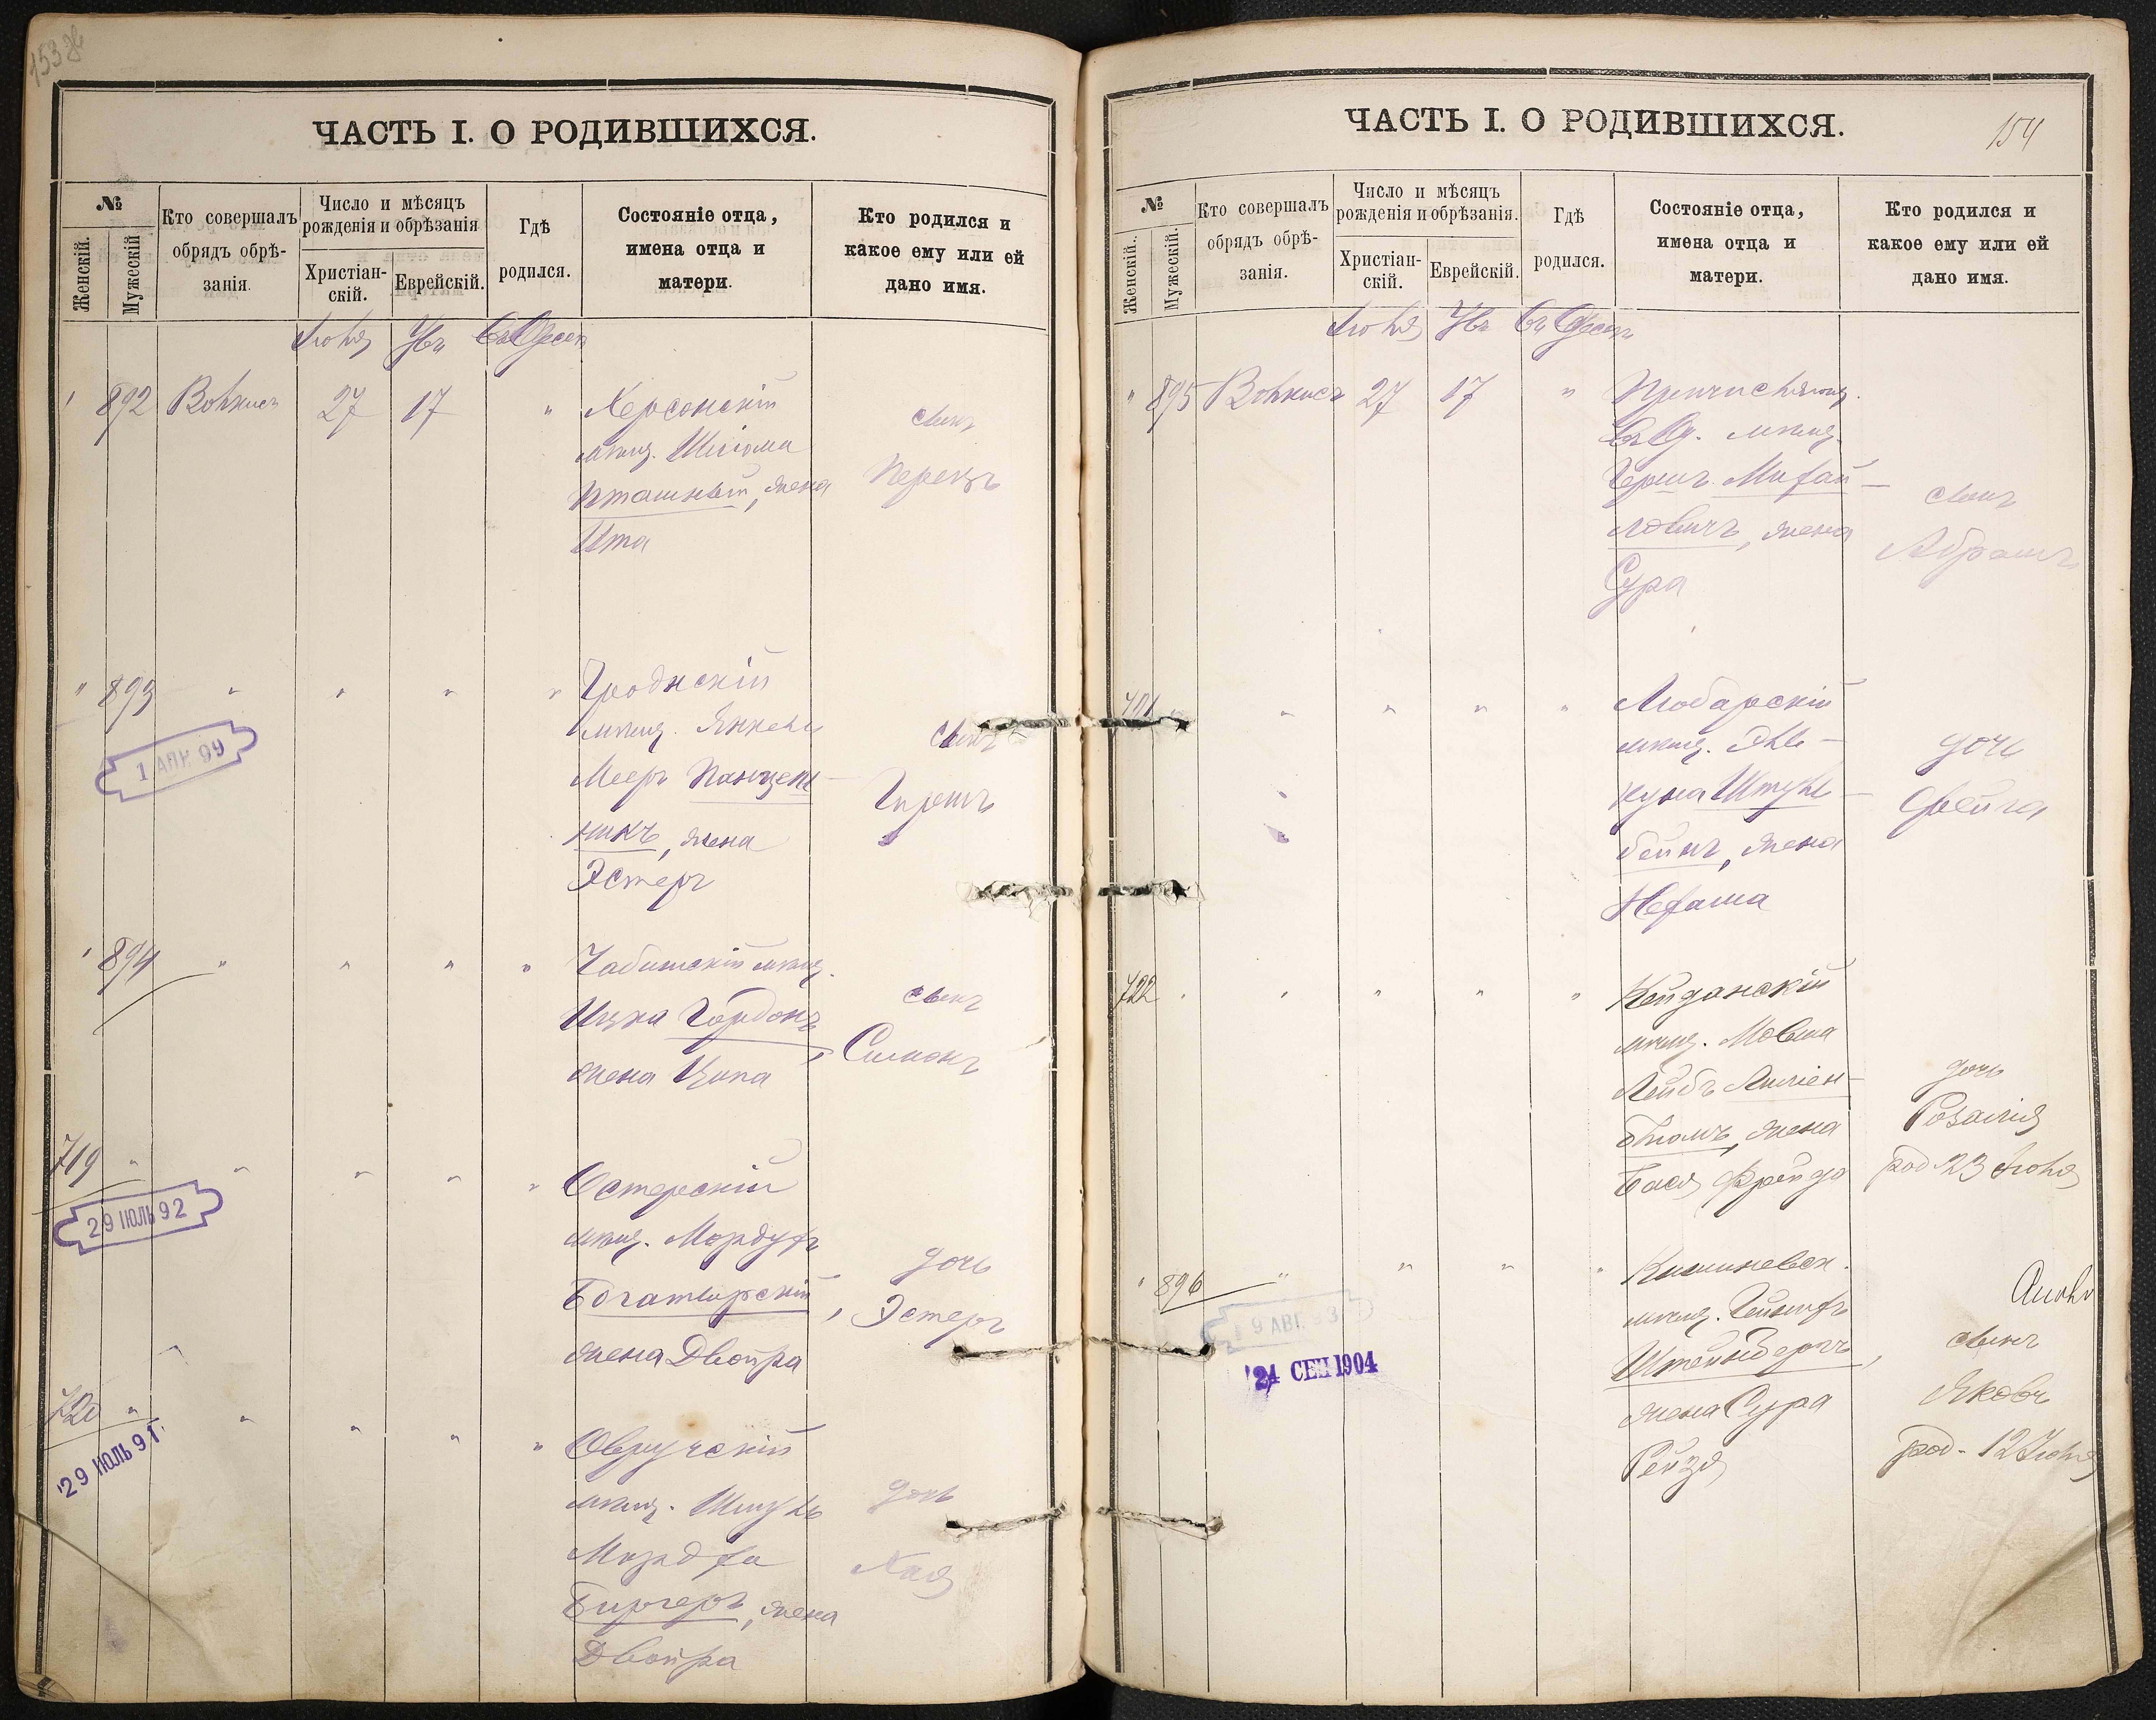 153 об
ЧАСТЬ I. О РОДИВШИХСЯ.
№
Женскій.
Мужескій
Кто совершалъ
обрядъ обрѣ-
занія.
Число и мѣсяцъ
рожденія и обрѣзанія
Христіан-
скій.
Еврейскій.
Гдѣ
родился.
Состояніе отца,
имена отца и
матери.
Кто родился и
какое ему или ей
дано имя.
Іюня
въ Одессѣ
" 892 27 17 " Херсонскій
мѣщ. Шліома
Пташный, жена
Ита
сынъ
Перецъ
" 893 " " " " Гроднскій
мѣщ. Янкель
Мееръ Панцель-
никъ, жена
Эстеръ
сынъ
Гиршъ
1 АПР 99
" 894 " " " " мѣщ.
Ицка Гордонъ,
жена Ципа
сынъ
Симонъ
719 " " " " " Остерскій
мѣщ. Мордухъ
Богатырскій,
жена Двойра
дочь
Эстеръ
29 ІЮЛЬ 92
720 " " " " " Овручскій
мѣщ. Шмуль
Мордха
Биргеръ, жена
Двойра
дочь
Хая
29 ІЮЛЬ 91
ЧАСТЬ I. О РОДИВШИХСЯ.
154
№
Женскій.
Мужескій.
Кто совершалъ
обрядъ обрѣ-
занія.
Число и мѣсяцъ
рожденія и обрѣзанія.
Христіан-
скій.
Еврейскій.
Гдѣ
родился.
Состояніе отца,
имена отца и
матери.
Кто родился и
какое ему или ей
дано имя.
Іюня
въ Одессѣ
" 895 27 17 "
въ Од. мѣщ.
Гершъ Михай-
ловичъ, жена
Сура
сынъ
Абрамъ
" " " " " Любарскій
мѣщ. Эль-
куна Штуль-
бейнъ, жена
Нехама
дочь
Фейга
722 " " " " " Кейданскій
мѣщ. Мовша
Лейбъ Лиліен-
блюмъ, жена
Бася Фрейда
дочь
Розалія
род. 23 Іюня
" 896 " " " " Кишиневск.
мѣщ.
Штейнбергъ,
жена Сура
Рейзя
сынъ
Яковъ
род. 12 Іюня
9 АВГ. 93
24 СЕН 1904